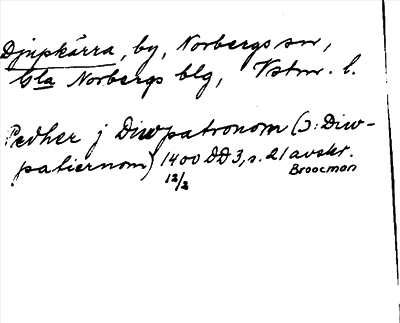 Djupkärra, by, Norbergs sn,
Gla Norbergs blg, Vstm. l.
Pedher j Diwpatronom (ɔ: Diw-
patiernom) 1400 DD3, s. 21 avskr.
12/2 Broocman